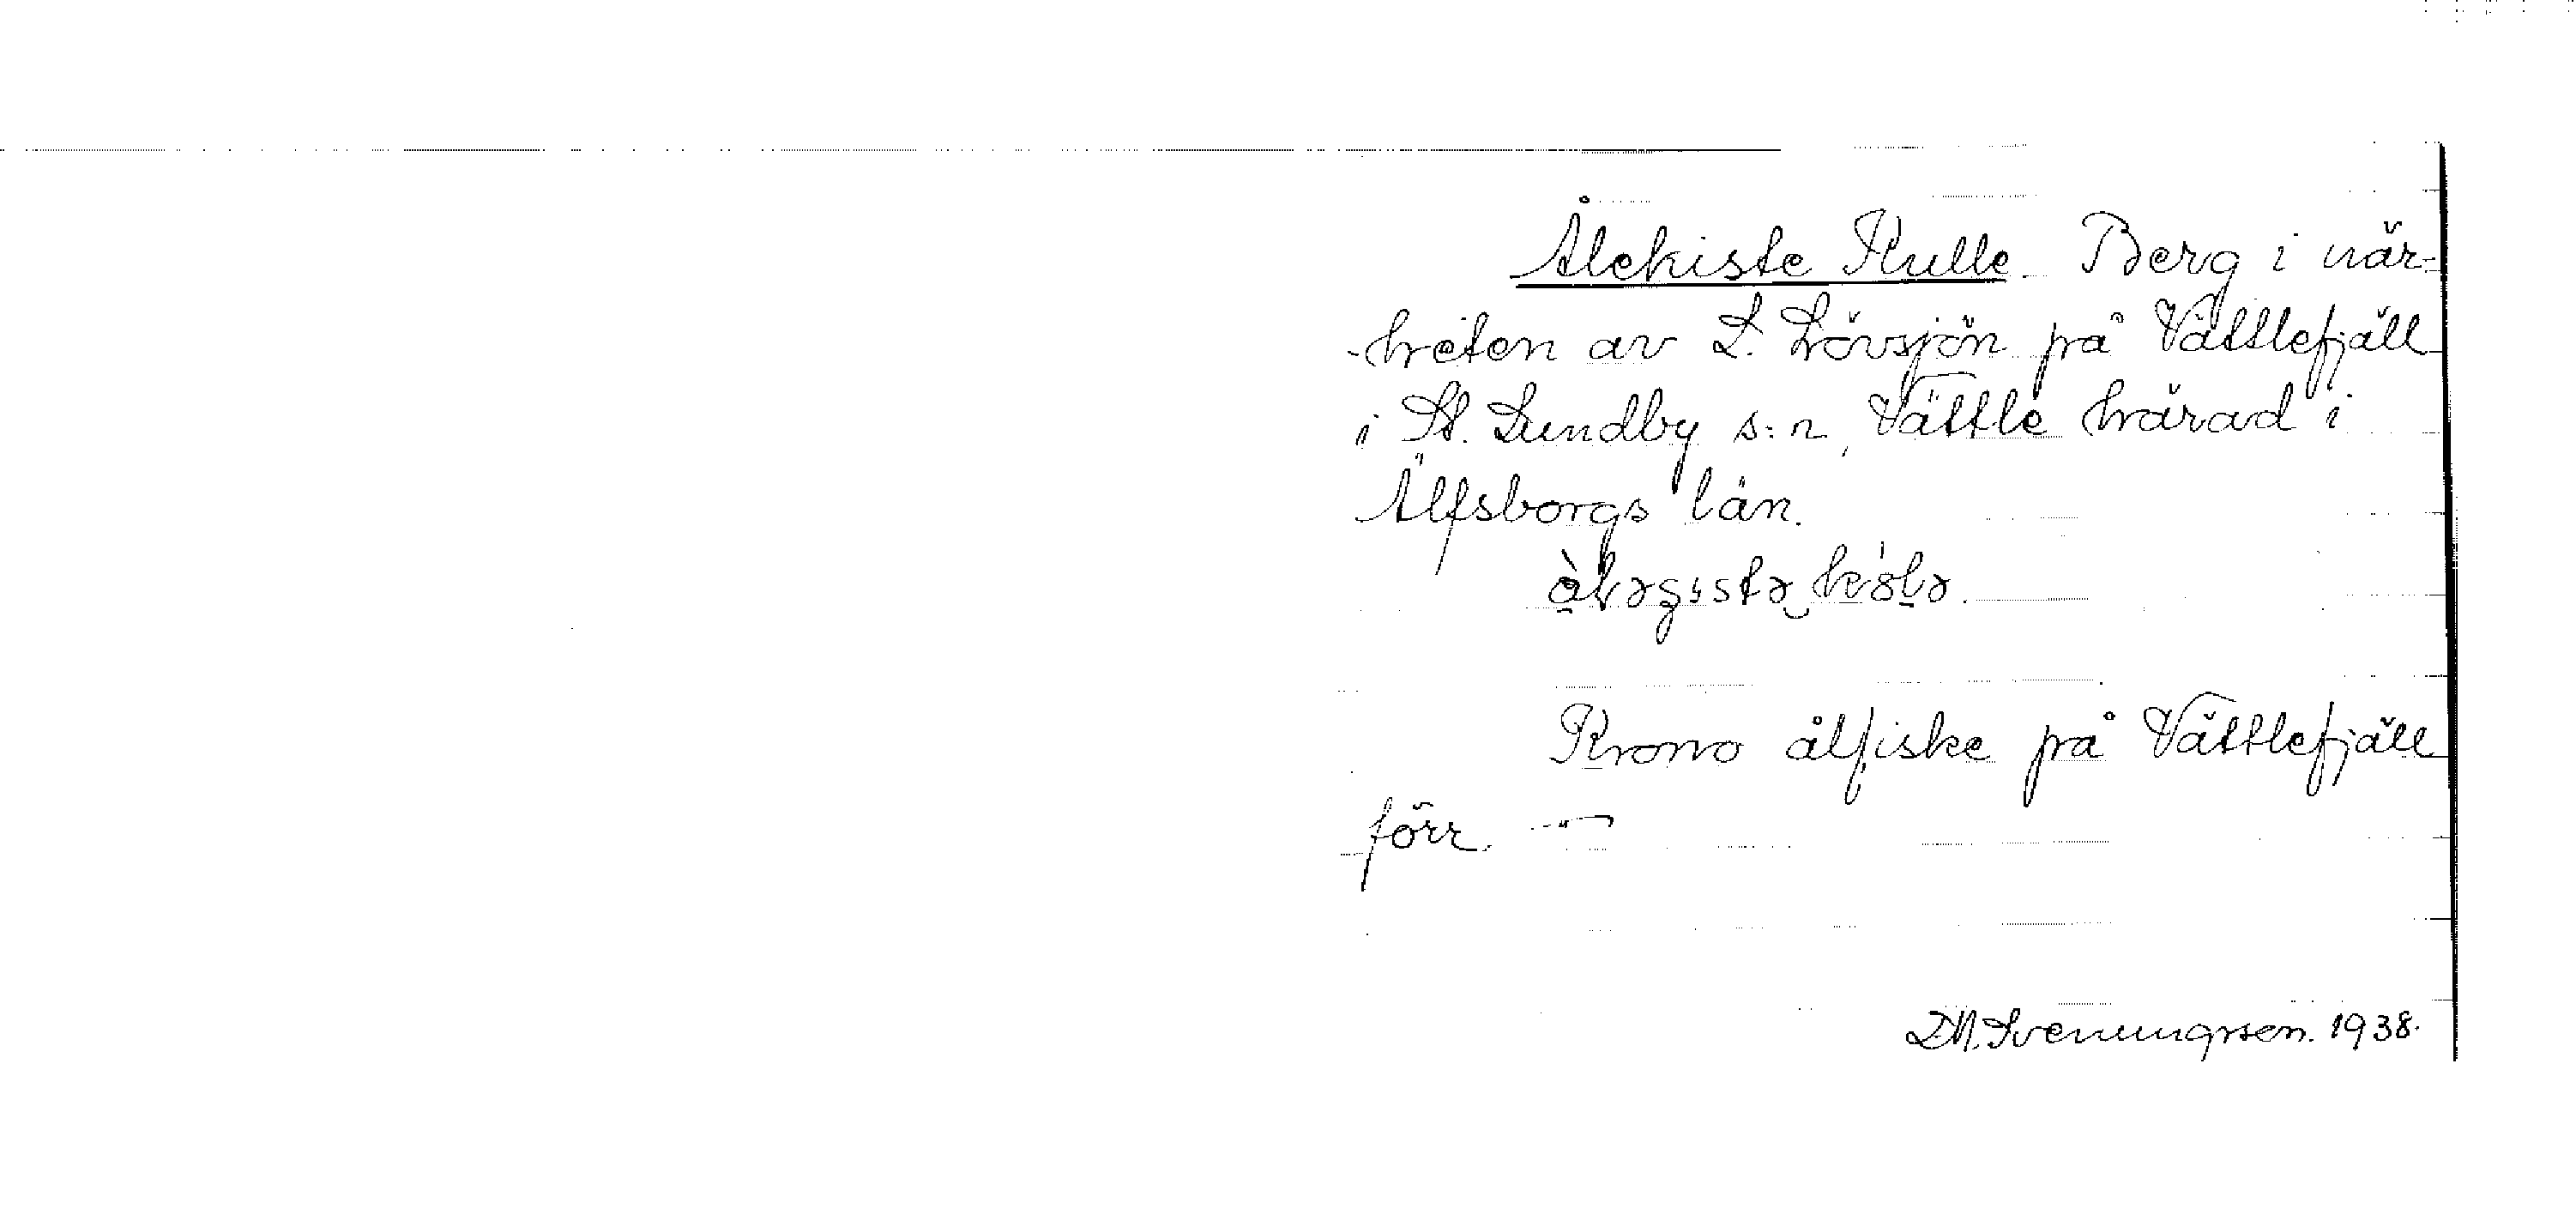 Ålekiste Kulle. Berg i när-
heten av L. Lövsjön på Vättlefjäll
i St. Lundby s:n, Vättle härad i
Älfsborgs län.
Krono ålfiske på Vättlefjäll
förr. —
D.M. Svenungsson. 1938.